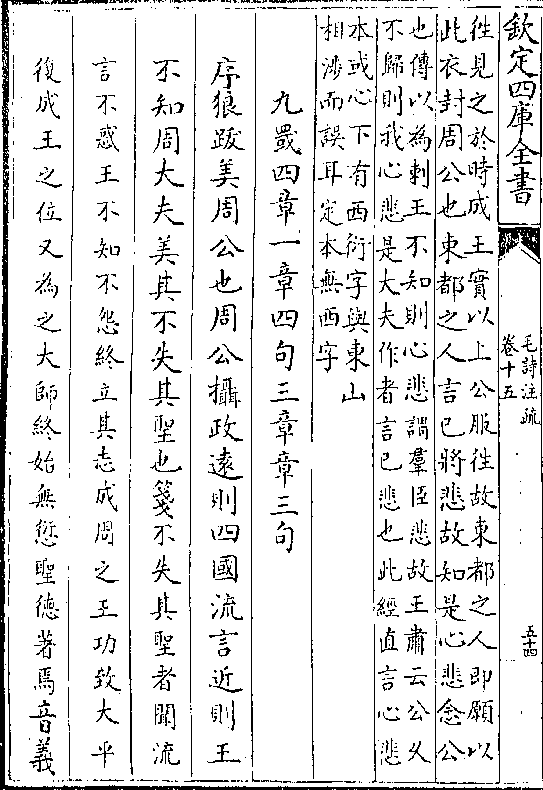 欽定四庫全書
毛詩注疏
卷十五
五十四
徃見之於時成王實以上公服徃故東都之人即願以
此衣封周公也東都之人言已將悲故知是心悲念公
也傳以為刺王不知則心悲謂羣臣悲故王肅云公乆
不歸則我心悲是大夫作者言已悲也此經直言心悲
本或心下有西衍字與東山
相渉而誤耳定本無西字
九罭四章一章四句三章章三句
序狼跋美周公也周公攝政遠則四國流言近則王
不知周大夫美其不失其聖也箋不失其聖者聞流
言不惑王不知不怨終立其志成周之王功致大平
復成王之位又為之大師終始無愆聖德著焉音義